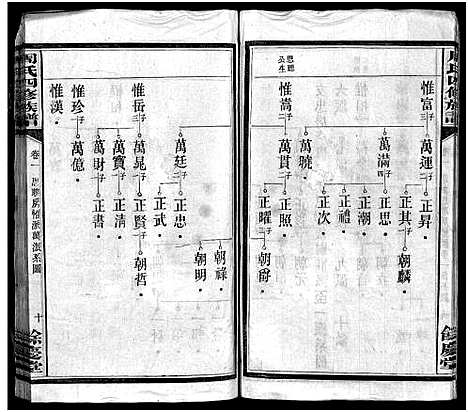 周氏四修族譜
餘慶堂
惟富 子二
萬運 子一
正昇
萬滿 子四
正其 子一
朝麟
正思
正潮
正禮
正次
思聰公生
惟嵩 子二
萬曉
萬貫 子二
正照
正曜 子一
朝爵
惟岳 子三
萬廷 子二
正忠 子二
朝祿
朝明
正武
萬晁 子一
正賢 子一
朝哲
萬寶 子一
正清
惟珍 子二
萬財 子一
正書
萬億
惟漢
周氏四修族譜
卷一
十
餘慶堂